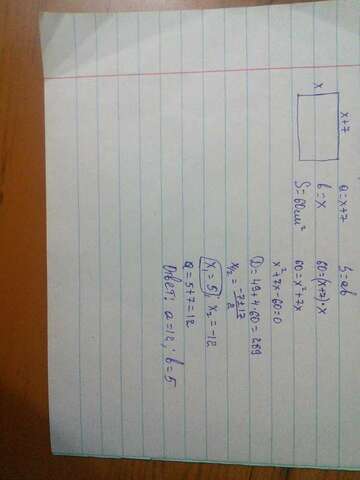 x+7
x
a=x+7
b=x
S=60см²
S=ab
60=(x+7)·x
60=x²+7x
x²+7x-60=0
D=49+4·60=289
x1/2=-7±17/2
x₁=5, x₂=-12
a=5+7=12
Ответ: a=12; b=5